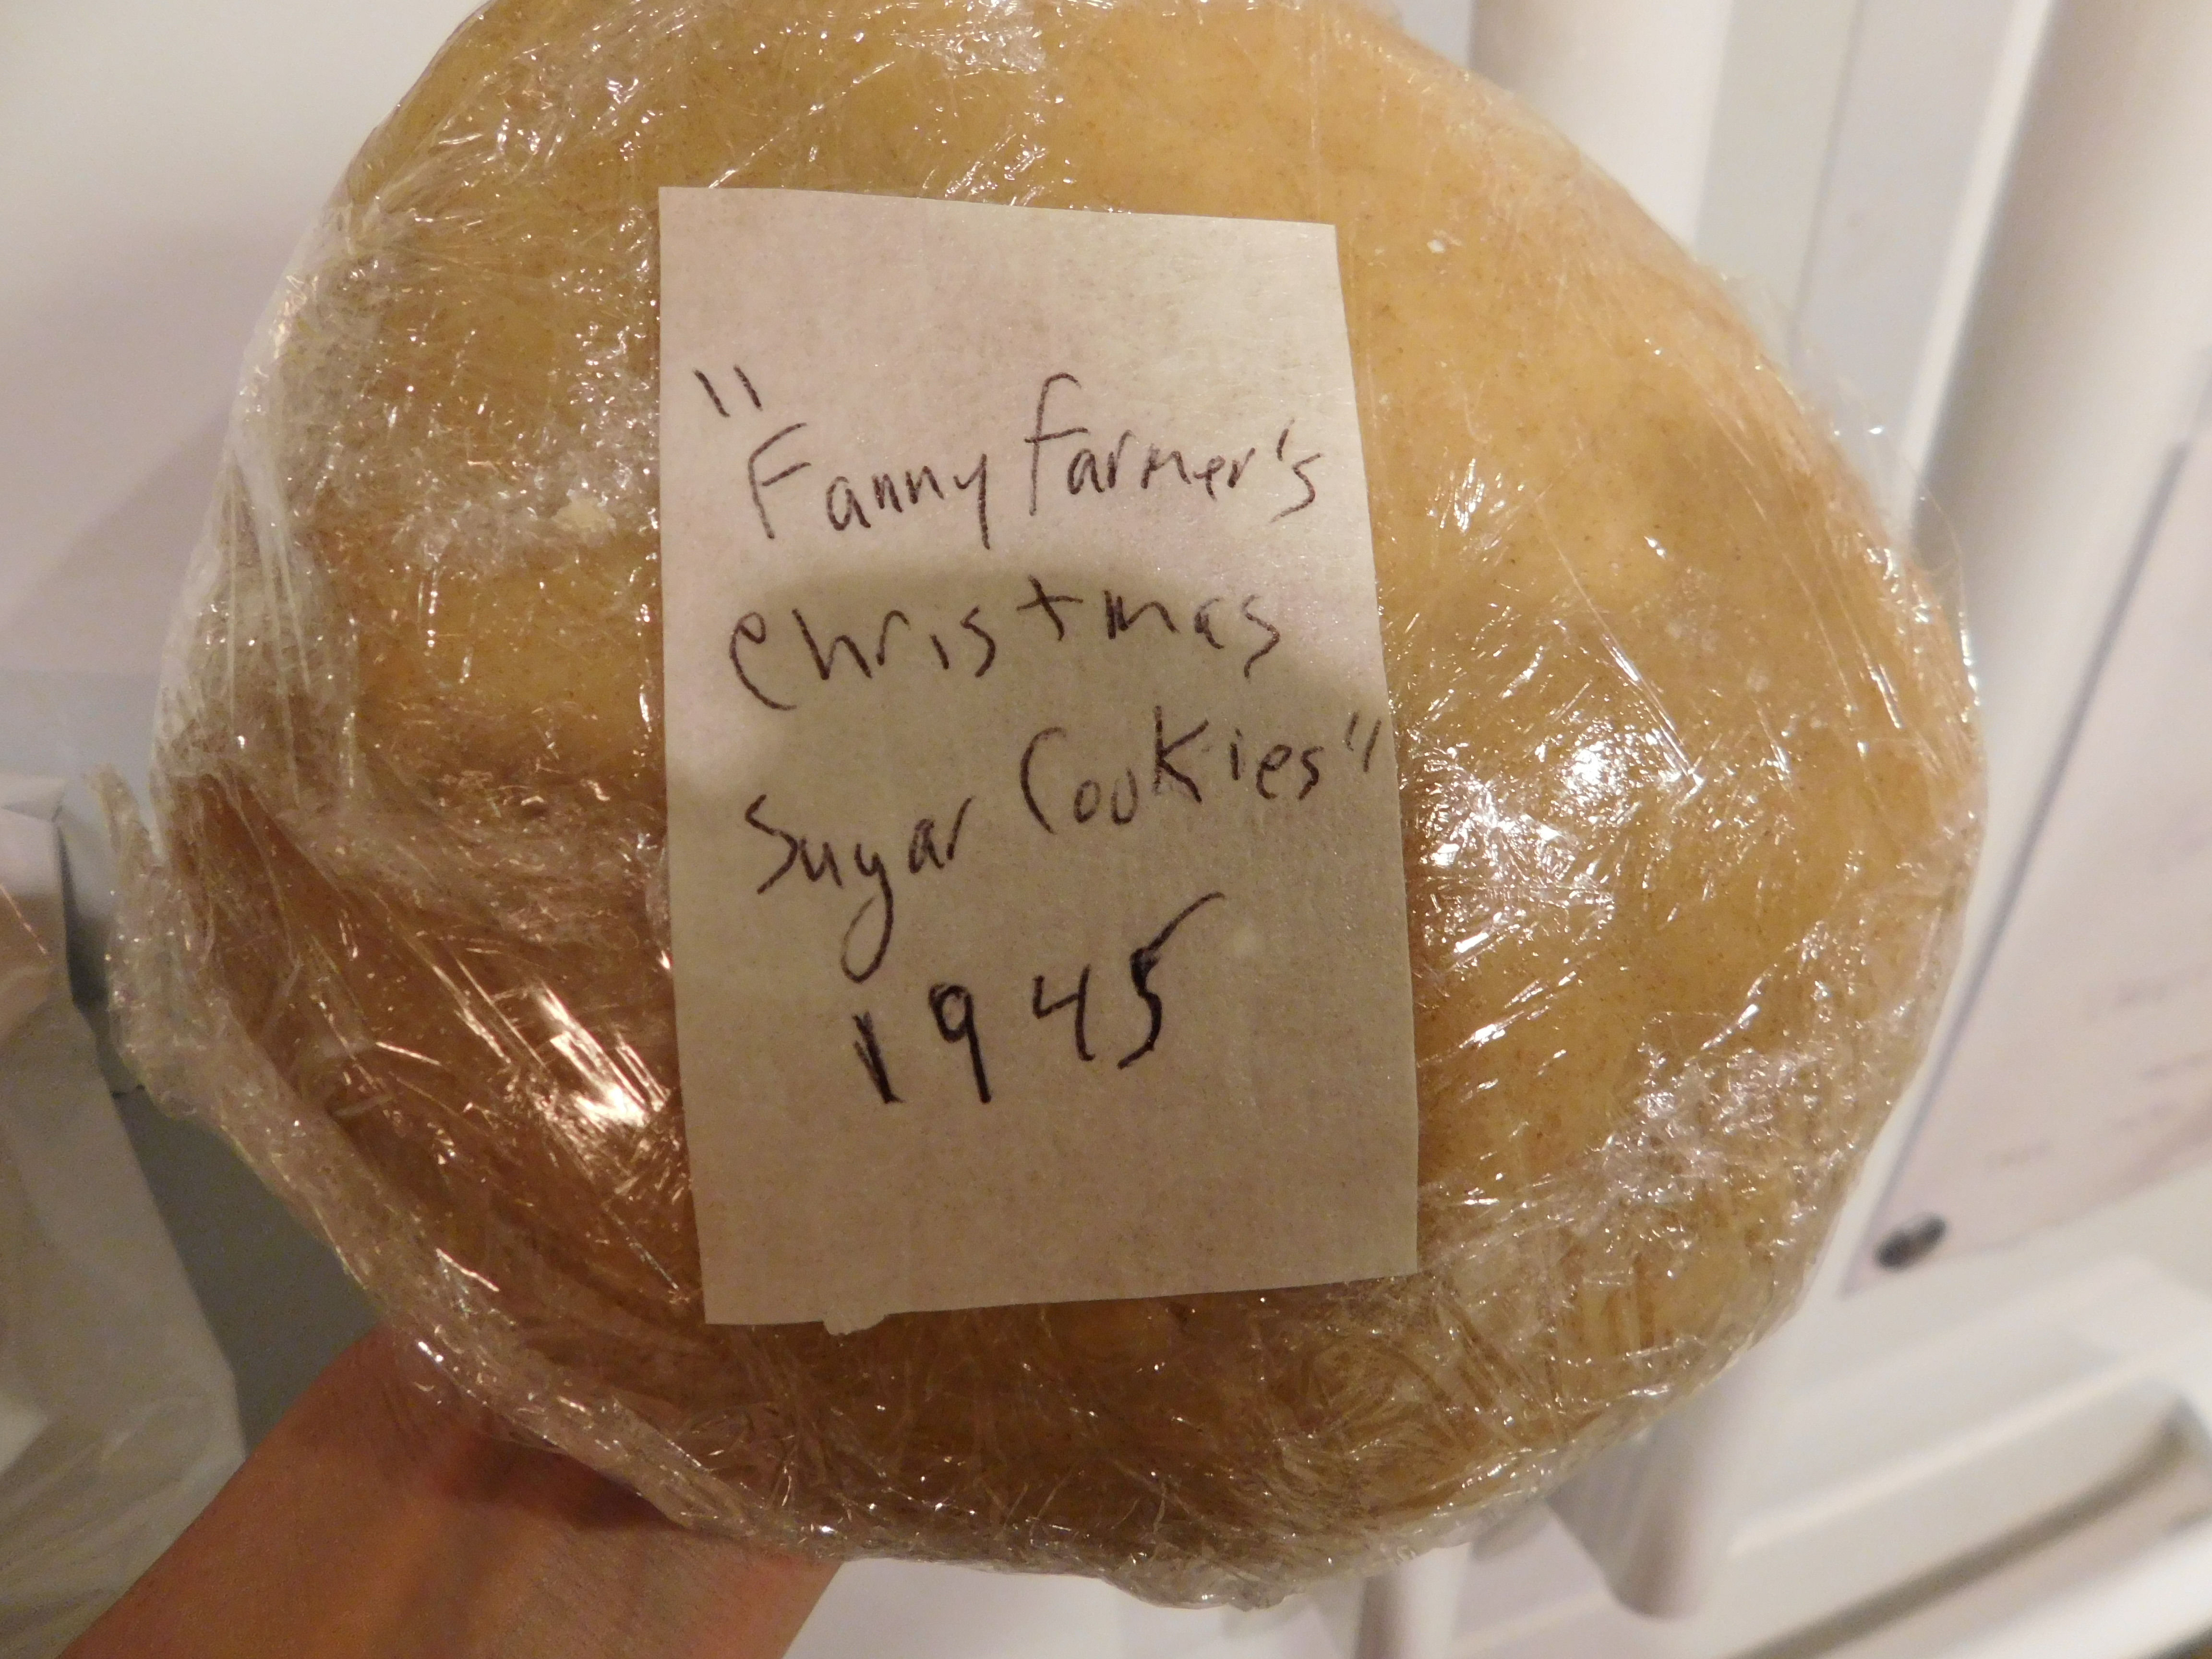 "Fanny Farmer's
Christmas
Sugar Cookies"
1945